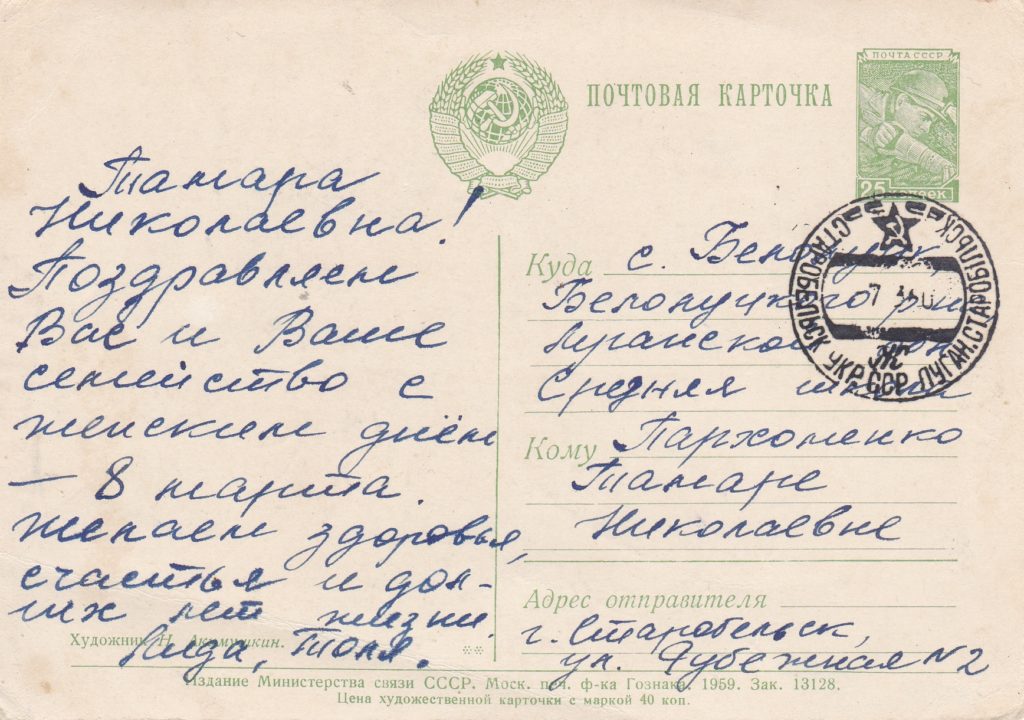 ПОЧТОВАЯ КАРТОЧКА
ПОЧТА СССР
25 КОПЕЕК
Тамара
Николаевна!
Поздравляем
Вас и Ваше
семейство с
женским днём
– 8 марта.
Желаем здоровья,
счастья и дол-
гих лет жизни.
Лида, Толя.
Художник Н. Акимушкин.
СТАРОБЕЛЬСК УКР.ССР ЛУГАН. СТАРОБІЛЬСК
Куда с. Белолуцк,
Белолуцкого
Луганской
Средняя школа
Кому Пархоменко
Тамаре
Николаевне
Адрес отправителя
г. Старобельск,
ул. Рубежная №2
Издание Министерства связи СССР. Моск. печ. ф-ка Гознака. 1959. Зак. 13128.
Цена художественной карточки с маркой 40 коп.